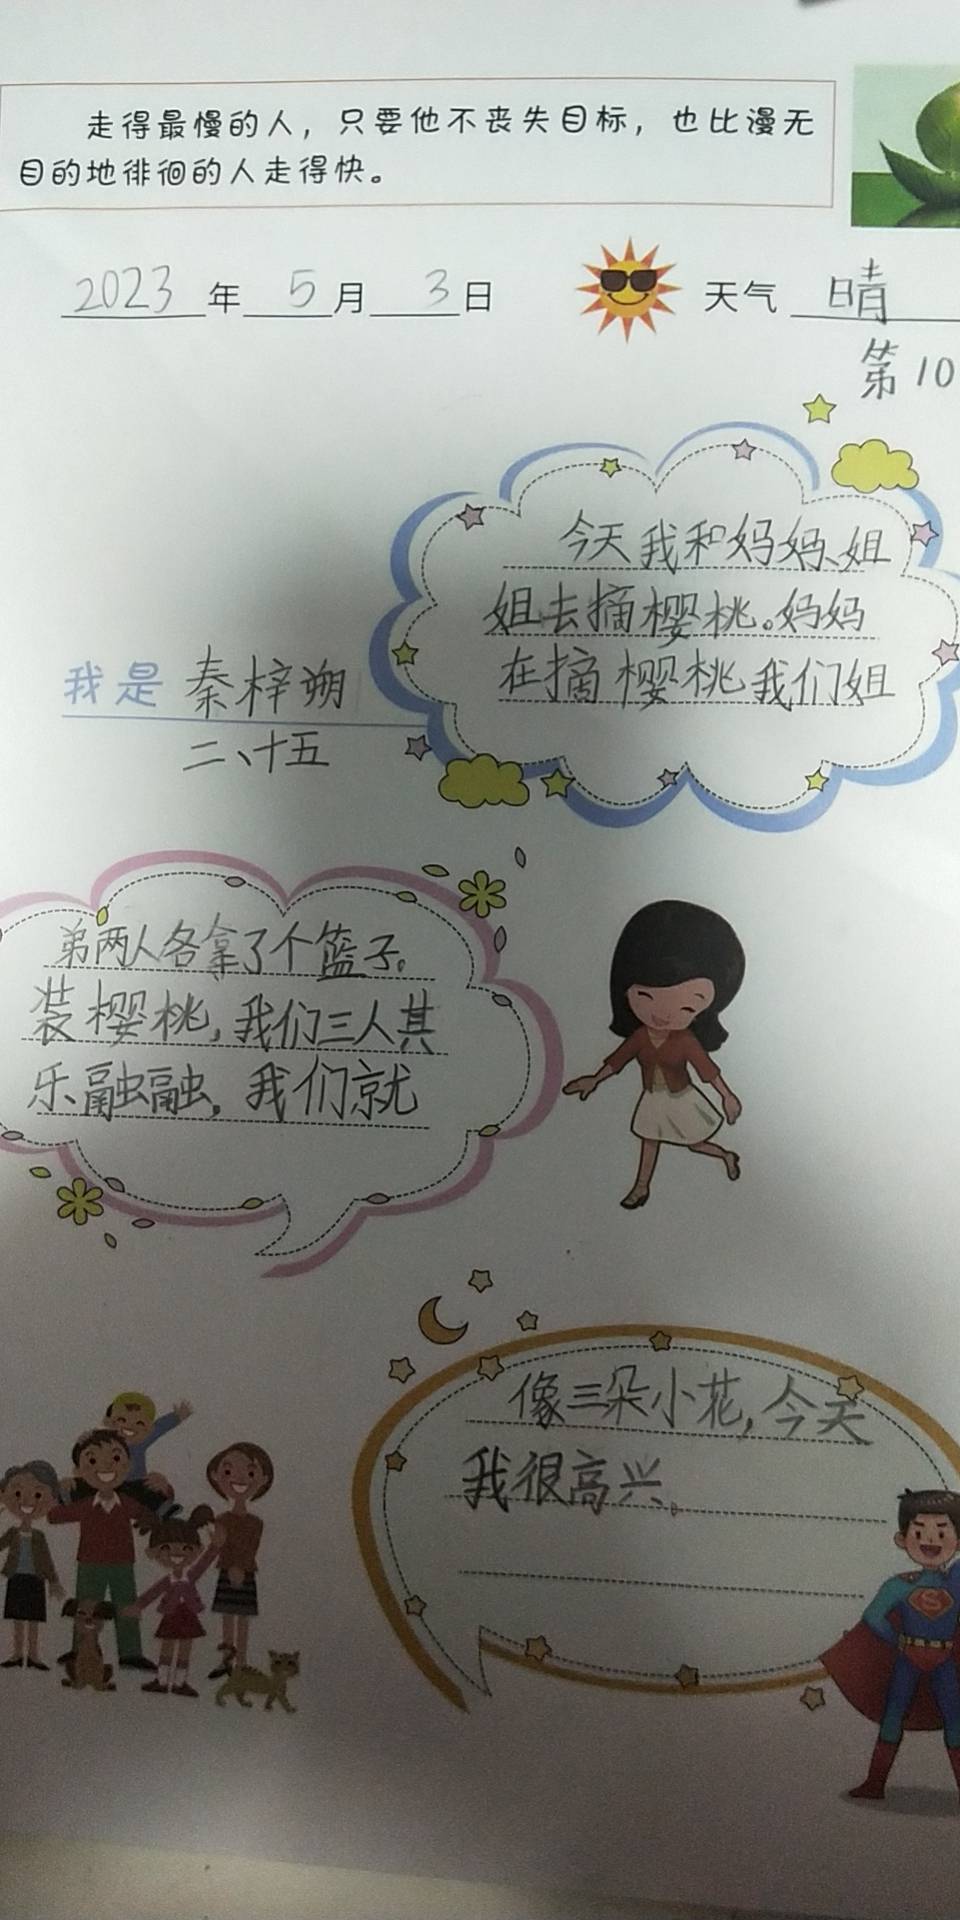 走得最慢的人，只要他不丧失目标，也比漫无
目的地徘徊的人走得快。
2023年5月3日 天气 晴
第10
今天我和妈妈、姐
姐去摘樱桃。妈妈
在摘樱桃我们姐
我是 秦梓朔
二、十五
弟两人各拿了个篮子。
装樱桃，我们三人其
乐融融。我们就
像三朵小花，今天
我很高兴。
S